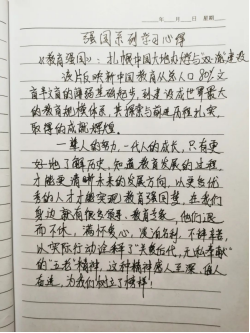 年 月 日 星期
强国系列学习心得
《教育强国》：扎根中国大地办学与"双一流"建设
该片反映新中国教育从总人口80%文
盲半文盲的薄弱基础起步，到建成世界最大
的教育规模体系，其探索与前进历程扎实，
取得的成就辉煌。
一辈人的努力，一代人的成长，只有更
好地了解历史，知道教育发展的过程
才能更清晰未来的发展方向，以更多优
秀的人才才能实现教育强国梦，在我们
身边就有很多领导、教育专家，他们退
而不休，满怀爱心，没沽名利，不辞辛苦，
以实际行动诠释了"关爱后代，无私奉
献"的"五老"精神，这种精神感人至深，催人
奋进，为我们树立了榜样！